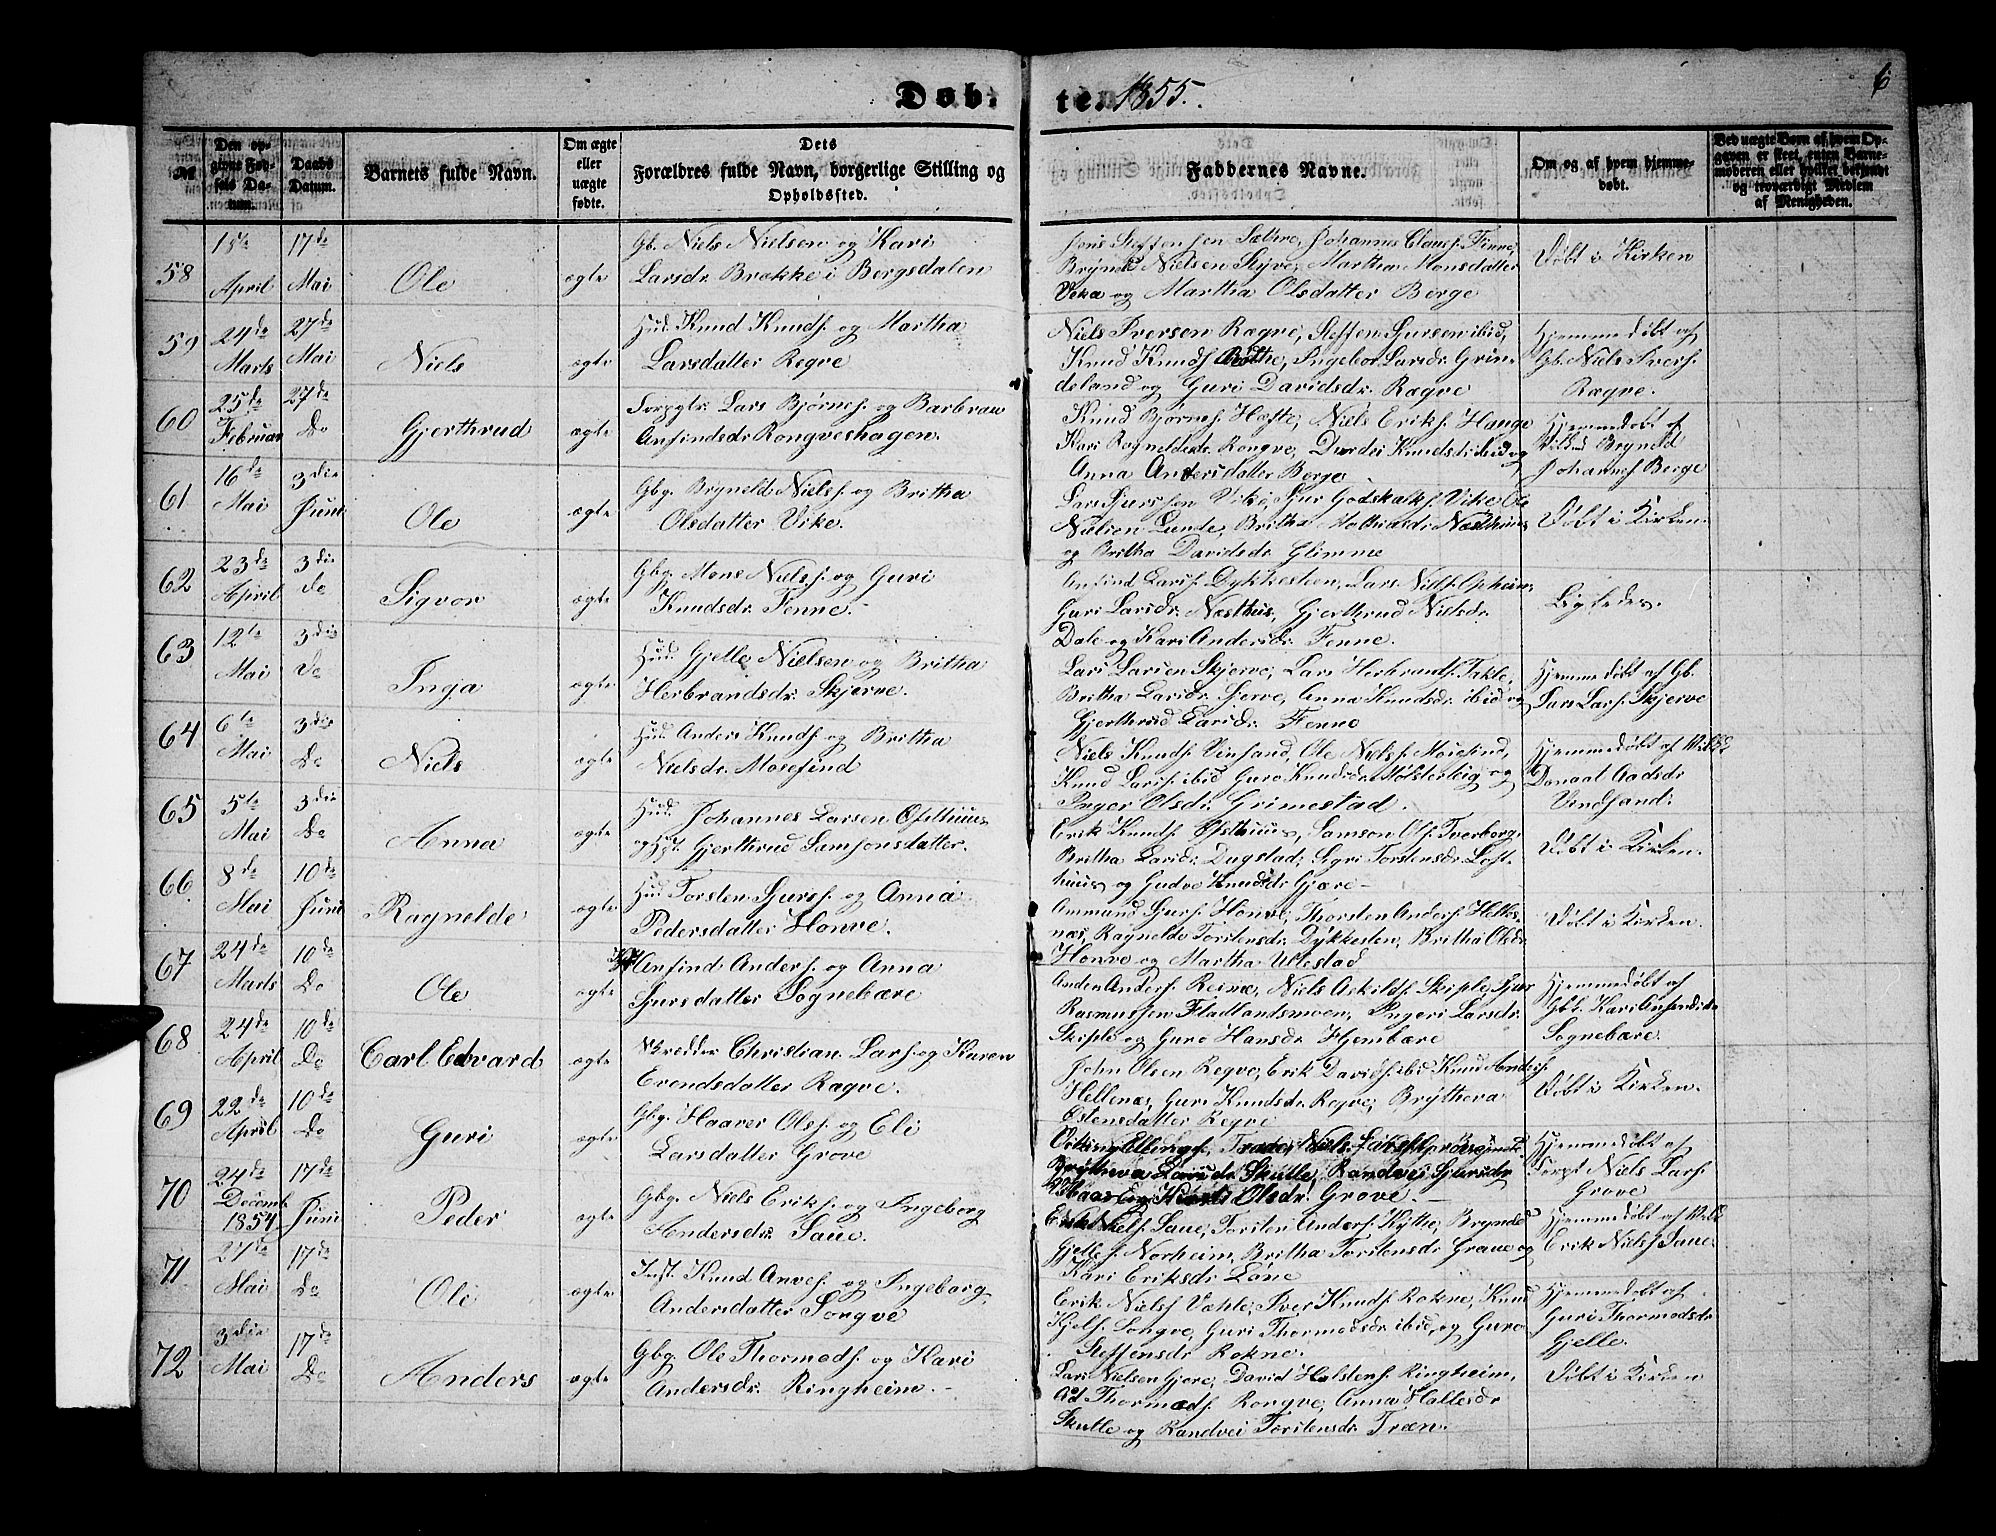 Døb-
te. 1855.
6
№
Den op-
givne Fød-
sels Da-
tum.
Daabs
Datum.
Barnets fulde Navn.
Om ægte
eller
uægte
fødte.
Dets
Forældres fulde Navn, borgerlige Stilling og
Opholdssted.
Faddernes Navne.
Om og af hvem hjemme-
døbt.
Ved uægte Børn af hvem Op-
gaven er skeet, enten Barne-
moderen eller hvilket bekjendt
og troværdigt Medlem
af Menigheden.
58
18de
April
17de
Mai
Ole
ægte
Gb. Niels Nielsen og Kari
Larsdr. Brække i Bergsdalen
Johannes Clausf. Finne,
Nielsen Skjve, Martha Monsdatter
og Martha Olsdatter Berge
Døbt i Kirken
59
24de
Marts
27de
Mai
Niels
ægte
Hud. Knud Knudf. og Martha
Larsdatter Regve
Niels Iversen Rægve, Steffen Sjursen ibid,
Knud Knudf. Ingebor Larsdr. Grin-
deland og Guri Davidsdr. Rægve
Hjemmedøbt af
Gb. Niels Iversf.
Rægve.
60
25de
Februar
27de
Do
Gjerthrud
ægte
Lars Bjørnesf. og Barbrau
Anfindsdr. Rongveshagen.
Knud Bjørnesf. Hæfte, Niels Eriksf. Hauge
Kari Rognaldsdr. Rongve, Durdei Knudsdr. ibid og
Anna Andersdatter Berge
Hjemmedøbt af
Bryneld
Johannesf. Berge
61
16de
Mai
3die
Juni
Ole
ægte
Gbg. Bryneld Nielsf. og Britha
Olsdatter Vike.
Lars Sjurssen Vike, Sjur Godskalksf. Vike, Ole
Nielsen Lunde, Britha Mathiasdr. Næsthuus
og Britha Davidsdr. Glimme
Døbt i Kirken.
62
23de
April
3die
do
Sigvor
ægte
Gbg. Mons Nielsf. og Guri
Knudsdr. Fenne.
Anfind Larsf. Dykkesten, Lars Nielsf. Opheim,
Guri Larsdr. Næsthus, Gjerthrud Nielsdr.
Dale og Kari Andersdr. Fenne.
Ligeledes.
63
12te
Mai
3die
do
Inga
ægte
Hud. Gjelle Nielsen og Britha
Herbrandsdr. Skjerve.
Lars Larsen Skjerve, Lars Herbrandsf. Takle,
Britha Larsdr. Anna Knudsdr. ibid og
Gjerthrud Larsdr. Fenne
Hjemmedøbt af Gb.
Lars Larsf. Skjerve
64
6te
Mai
3die
Do
Niels
ægte
Hud. Anders Knudf. og Britha
Nielsdr. Mosefind
Niels Knudf. Vinsand, Ole Nielsf. Mosefind,
Knud Larsf. ibid, Guro Knudsdr. Mølsterteig og
Inger Olsdr. Grimestad.
Hjemmedøbt af
Aadsdr
Vindsand.
65
5te
Mai
3die
Do
Anna
ægte
Hud. Johannes Larsen Østhuus
og Gjerthrud Samsonsdatter.
Erik Knudf. Østhuus, Samson Olsf. Tverberg,
Britha Larsdr. Dagstad, Sigri Torstensdr. Loft-
huus og Gudve Knudsdr. Gjære
Døbt i Kirken.
66
8de
Mai
10de
Juni
Ragnelde
ægte
Hud. Torsten Sjursf. og Anna
Pedersdatter Honve.
Ammund Sjursf. Honve, Thorsten Andersf. Helles-
næs, Ragnelde Torstensdr. Dykkesten, Britha Olsdr.
Honve og Martha Ullestad
Døbt i Kirken.
67
24de
Marts
10de
Do
Ole
ægte
Anfind Andersf. og Anna
Sjursdatter Sognebære
Anders Andersf. Reime, Niels Askildsf. Skiple, Sjur
Rasmussen Fladlandsmoen, Ingeri Larsdr.
Skiple og Guro Hansdr. Hjembære
Hjemmedøbt af
Gbk. Kari
Sognebære.
68
24de
April
10de
Do
Carl Edvard
ægte
Skredder Christian Larsf. og Karen
Evendsdatter Rægve.
John Olsen Regve, Erik Davidsf. ibid, Knud Andersf.
Hellenæs, Guri Knudsdr. Regve, Brythova
Østensdatter Regve
Døbt i Kirken.
69
22de
April
10de
Do
Guri
ægte
Gbg. Haaver Olsf. og Eli
Larsdatter Grove
Viking Ellingsf. Niels Larsf.
Brythova Larsdr. Skulle, Randvei Sjursdr.
Olsdr. Grove
Hjemmedøbt af
Niels Larsf.
Grove
70
24de
Decemb.
1854
17de
Juni
Peder
ægte
Gbg. Niels Eriksf. og Ingeborg
Andersdr. Saue.
Nielsf. Saue, Torsten Andersf. Kythe, Bryneld
Gjellesf. Norheim, Britha Torstensdr. Graue og
Kari Eriksdr. Løne
Hjemmedøbt af
Erik Nielsf. Saue.
71
27de
Mai
17de
Do
Oli
ægte
Inst. Knud Anvesf. og Ingeborg
Andersdatter Songve
Erik Nielsf. Væhle, Iver Knudf. Rokne, Knud
Kjelsf. Songve, Guri Thormodsdr. ibid, og Guro
Steffensdr. Rokne.
Hjemmedøbt af
Guri Thormodsdr
Gjelle.
72
3die
Mai
17de
Do
Anders
ægte
Gbg. Ole Thormodsf. og Kari
Andersdr. Ringheim.
Lars Nielsen Gjere, David Halstensf. Ringheim,
Ad Thormodsf. Rongve, Anna Hallesdr
Skulle og Randvei Torstensdr. Træn.
Døbt i Kirken